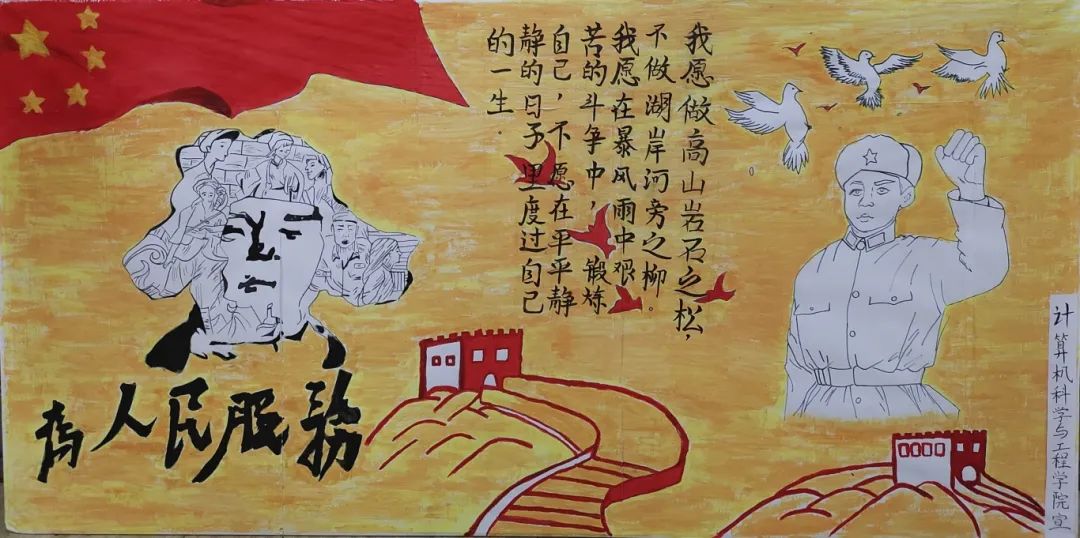 我愿做高山岩石之松，
不做湖岸河旁之柳．
我愿在暴风雨中艰
苦的斗争中，锻炼
自己，不愿在平平静
静的日子里度过自己
的一生．
為人民服務
计算机科学与工程学院宣